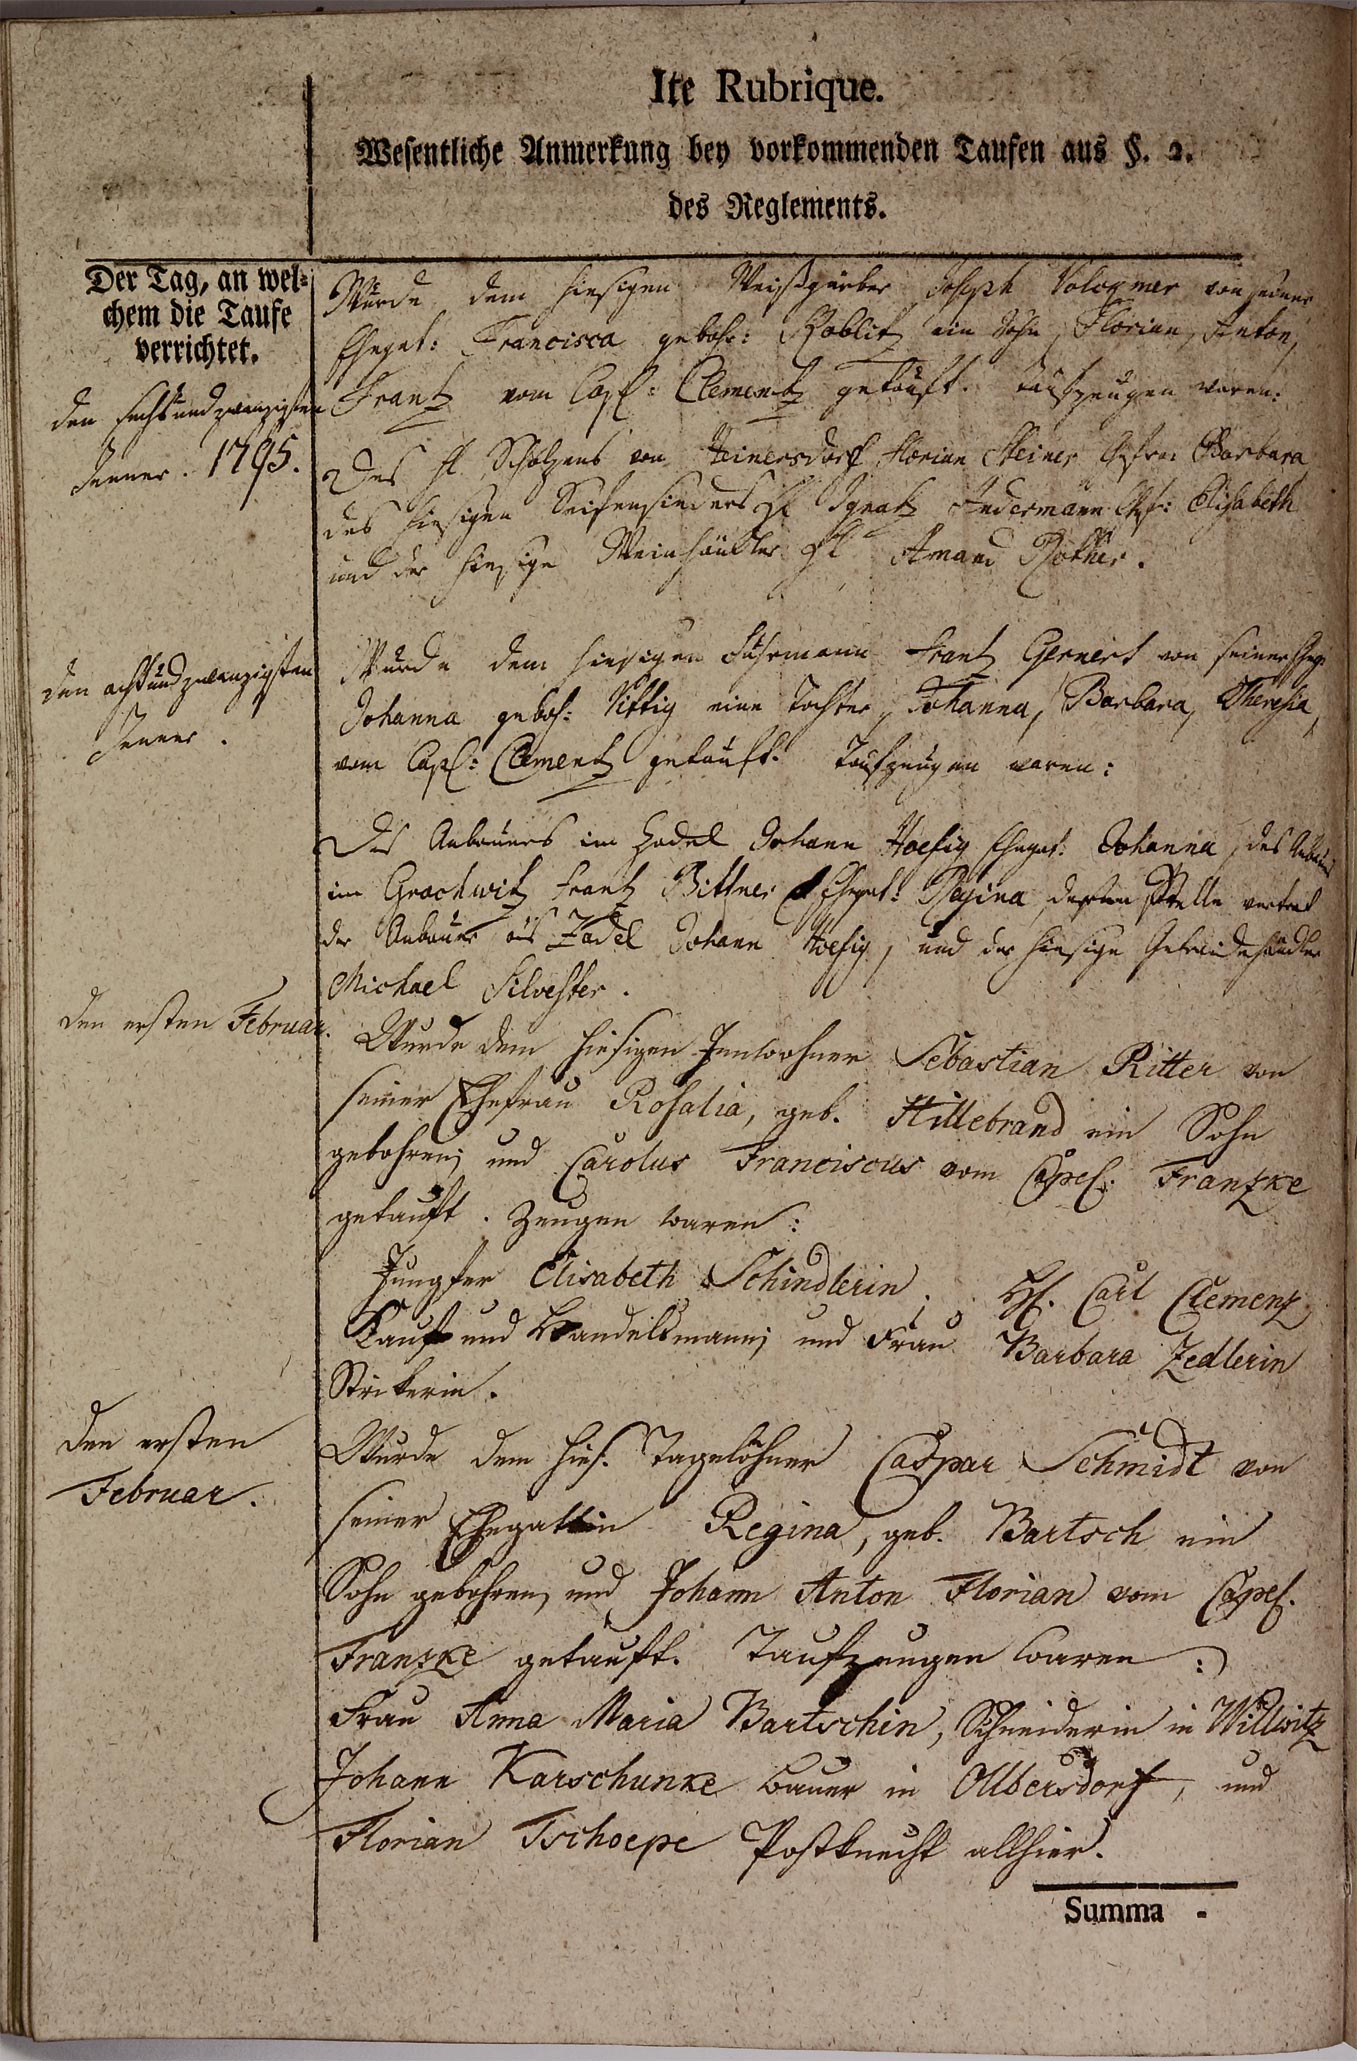 Ite Rubrique.
Wesentliche Anmerkung bey vorkommenden Taufen aus §. 2.
des Reglements.
Der Tag, an wel-
chem die Taufe
verrichtet.
den sechsundzwanzigsten
Jenner. 1795.
Wurde dem hiesigen Weißgärber Joseph Vologmer von seiner
Ehegat: Francisca gebohr: Koblitz ein Sohn, Florian, Anton,
Frantz vom Capl: Clementz getauft. Taufzeugen waren:
Des H. Scholzens von Heinersdorf Florian Steiner Ehefrau Barbara
des hiesigen Seifensieders H. Ignatz Andermann Ehf: Elisabeth
und der hiesige Weinhändler H. Amand Rother.
den achtundzwanzigsten
Jenner.
Wurde dem hiesigen Fuhrmann Frantz Gernert von seiner Eheg:
Johanna geboh: Vittig eine Tochter, Johanna, Barbara, Theresia,
vom Capl: Clementz getauft. Taufzeugen waren:
Des Anbauers im Hadel Johann Hoefig Ehegat: Johanna, des Anbauers
im Grochwitz Frantz Bittner Ehegat: Regina, dessen Stelle vertrat
der Anbauer aus Zadel Johann Hoefig, und der hiesige Getreidehändler
Michael Silvester.
den ersten Februar.
Wurde dem hiesigen Innwohner Sebastian Ritter von
seiner Ehefrau Rosalia, geb. Hillebrand ein Sohn
gebohren, und Carolus Franciscus vom Capel. Franzke
getauft. Zeugen waren:
Jungfer Elisabeth Schindlerin, H. Carl Clemenz
Kauf und Handelsmann, und Frau Barbara Zedlerin
Strikerin.
den ersten
Februar.
Wurde dem hies. Tagelöhner Caspar Schmidt von
seiner Ehegattin Regina, geb. Bartsch ein
Sohn gebohren, und Johann Anton Florian vom Capel.
Franzke getauft. Taufzeugen waren:
Frau Anna Maria Bartschin, Schneiderin in Willwitz
Johann Karschunke Bauer in Olbersdorf, und
Florian Tschoepe Postknecht allhier.
Summa -